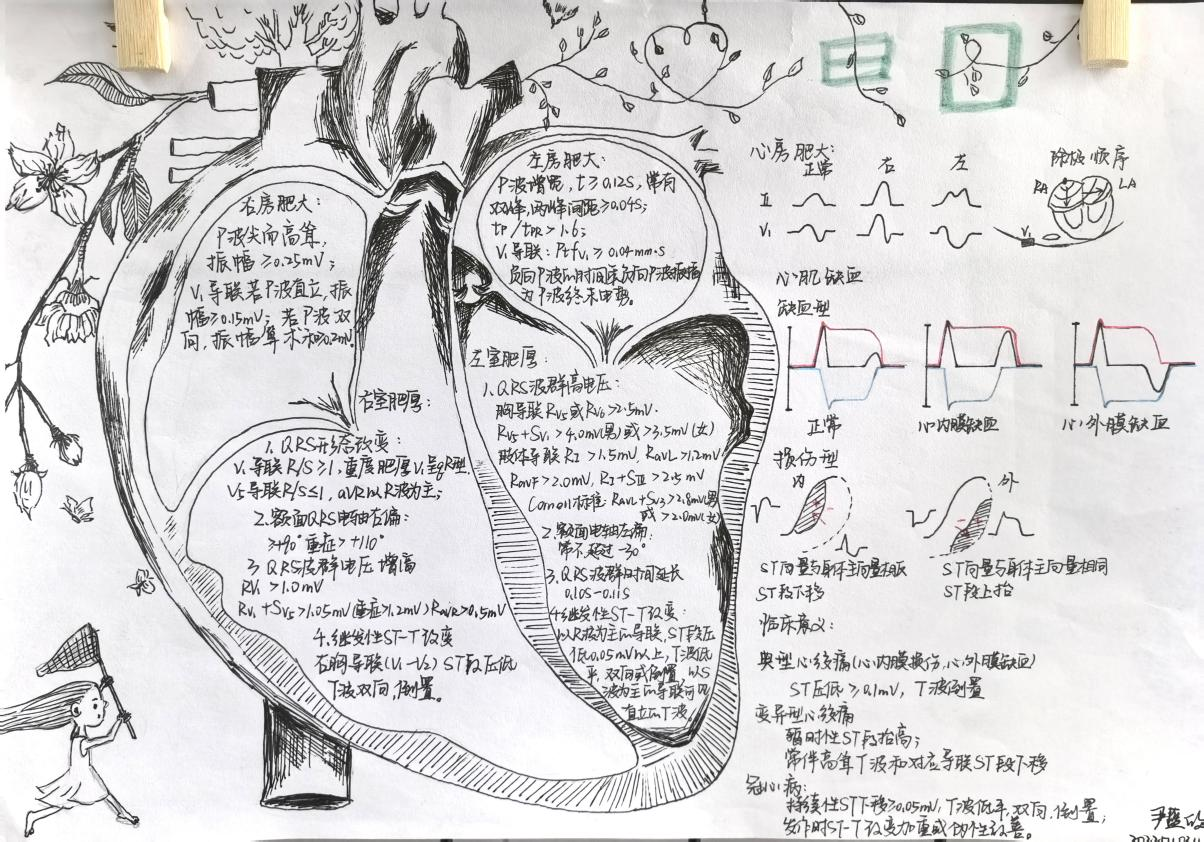 右房肥大:
P波尖而高耸,
振幅≥0.25mV;
V₁导联若P波直立,振
幅≥0.15mV;若P波双
向,振幅算术和≥0.2mV.
左房肥大:
P波增宽,t≥0.12s,常有
双峰,两峰间距≥0.04s;
V₁导联:Ptfv₁≥0.04mm·s
负向P波的时间乘负向P波振幅
为P波终末电势。
右室肥厚:
1.QRS形态改变:
V₁导联R/S≥1,重度肥厚V₁呈qR型,
V5导联R/S≤1,aVR以R波为主;
2.额面QRS电轴右偏:
≥+90° 重症>+110°
3.QRS波群电压增高
RV₁>1.0mV
RV₁+SV5>1.05mV(重症>1.2mV) RaVR>0.5mV
4.继发性ST-T改变
右胸导联(V₁-V₂)ST段压低
T波双向,倒置。
左室肥厚:
1.QRS波群高电压:
胸导联RV5或RV6>2.5mV.
RV5+SV₁>4.0mV(男)或>3.5mV(女)
肢体导联RⅠ>1.5mV,RaVL>1.2mV
RaVF>2.0mV,RⅠ+SⅢ>2.5mV
Cornell标准:RaVL+SV3>2.8mV(男)
或>2.0mV(女)
2.额面电轴左偏:
常不超过-30°
3.QRS波群时间延长
0.10s-0.11s
4.继发性ST-T改变:
以R波为主的导联,ST段压
低0.05mV以上,T波低
平,双向或倒置,以S
波为主的导联可见
直立的T波
心房肥大:
正常 右 左
Ⅱ
V₁
除极顺序
RA LA
V₁
心肌缺血
缺血型
正常 心内膜缺血 心外膜缺血
损伤型
内 外
ST向量与QRS主向量相反 ST向量与QRS主向量相同
ST段下移 ST段上抬
临床意义:
典型心绞痛(心内膜损伤,心外膜缺血)
ST压低≥0.1mV,T波倒置
变异型心绞痛
暂时性ST段抬高;
常伴高耸T波和对应导联ST段下移
冠心病:
持续性ST下移≥0.05mV,T波低平,双向,倒置;
发作时ST-T改变加重或伪性改善。